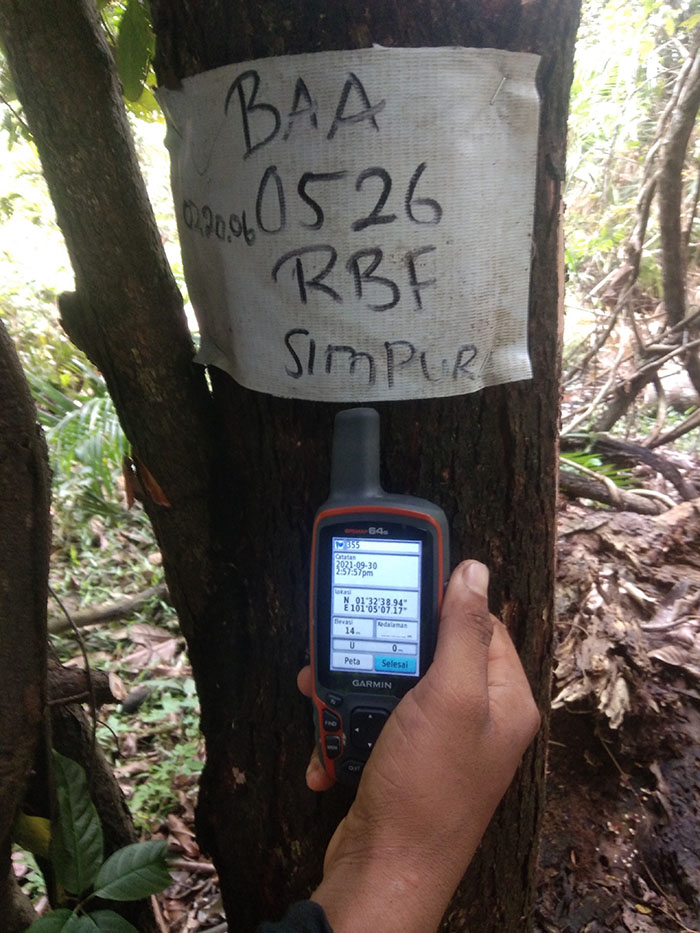 BAA
0526
0220.06
RBF
SIMPUR
GPSMAP 64s
355
Catatan
2021-09-30
2:57:57pm
Lokasi
N 01°32'38.94"
E 101°05'07.17"
Elevasi
Kedalaman
14 m
U
0 m
Peta
Selesai
GARMIN
FIND